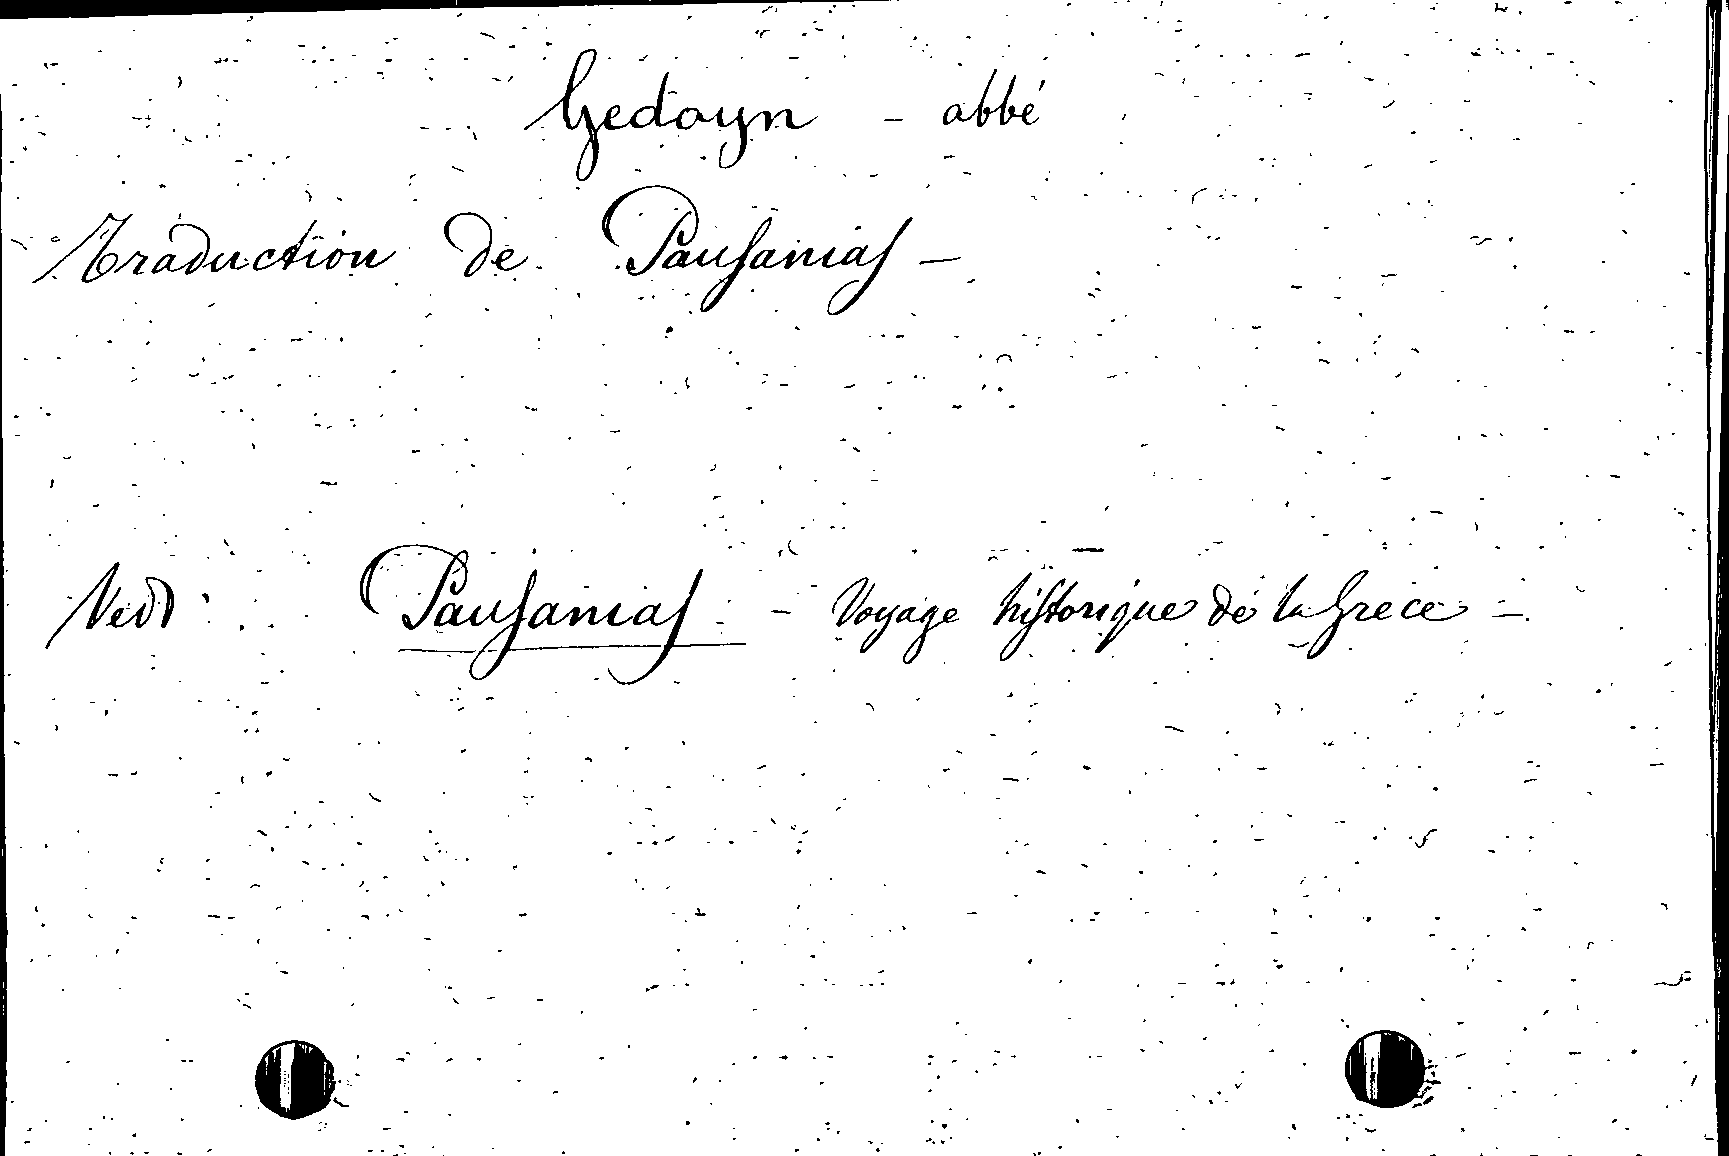 Gedoyn - abbé
Traduction de Pausanias -
Vedi: Pausanias - Voyage historique de la Grece -